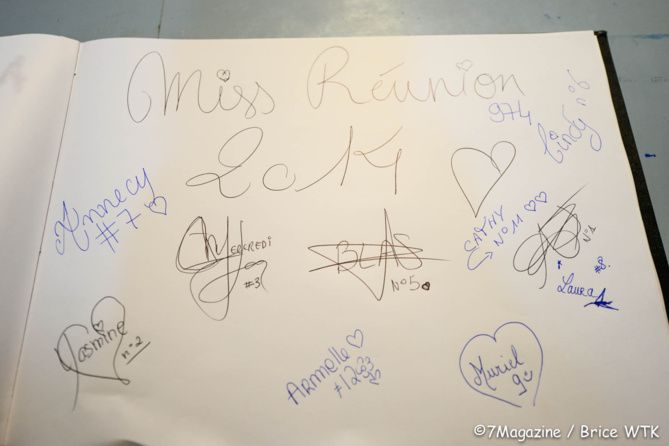 Miss Réunion
974
2014
Cindy n°6
Annecy
#7
Mercredi
#3
BLAS
N°5
CATHY
N°11
N°1
#8
Laura
Jasmine
n°2
Armelle
#12
Muriel
9
©7Magazine / Brice WTK